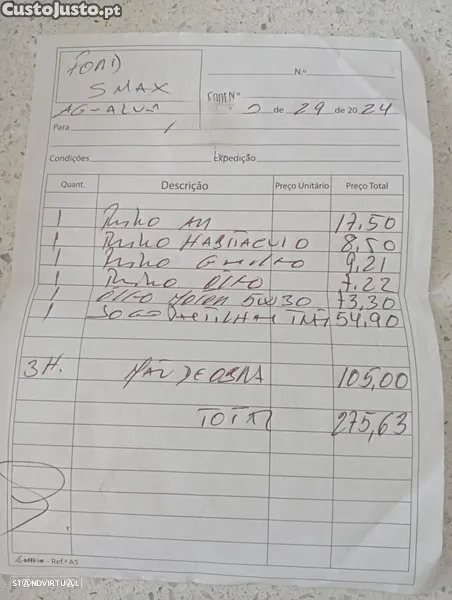 CustoJusto.pt
FORD
SMAX
AGUALVA
N.º
Cont Nº
de 29 de 2024
Para
Condições Expedição
Quant. Descrição Preço Unitário Preço Total
1 Filtro AR 17,50
1 Filtro HABITACULO 8,50
1 Filtro 9,21
1 Filtro ÓLEO 7,22
1 ÓLEO 5W30 73,30
1 JOGO PASTILHAS 54,90
3H. MÃO DE OBRA 105,00
TOTAL 275,63
office - Ref.ª A5
STANDVIRTUAL